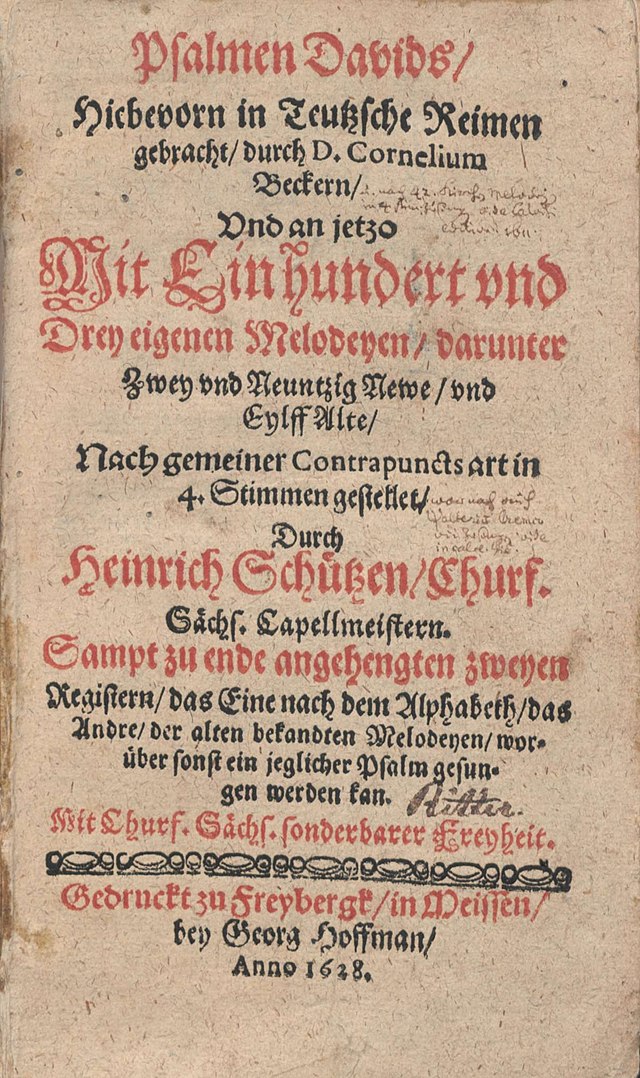 Psalmen Davids/
Hiebevorn in Teutzsche Reimen
gebracht/ durch D. Cornelium
Beckern/
Vnd an jetzo
Mit Ein hundert vnd
Drey eigenen Melodeyen/ darunter
Zwey vnd Neuntzig Newe/ vnd
Eylff Alte/
Nach gemeiner Contrapuncts art in
4. Stimmen gestellet/
Durch
Heinrich Schützen/ Churf.
Sächs. Capellmeistern.
Sampt zu ende angehengten zweyen
Registern/ das Eine nach dem Alphabeth/ das
Andre/ der alten bekandten Melodeyen/ wor-
über sonst ein jeglicher Psalm gesun-
gen werden kan.
Ritter.
Mit Churf. Sächs. sonderbarer Freyheit.
Gedruckt zu Freybergk/ in Meissen/
bey Georg Hoffman/
Anno 1628.